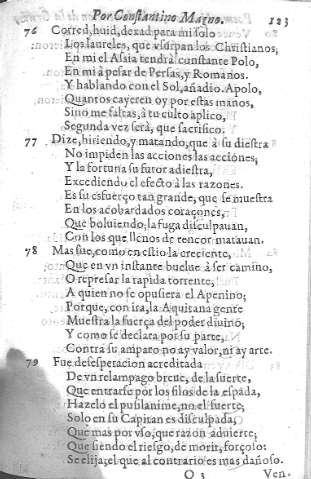 Por Constantino Magno. 123
76 Corred, huid, dexad para mi solo
Los laureles, que vsurpan los Christianos;
En mi el Asia tendrà constante Polo,
En mi à pesar de Persas, y Romanos.
Y hablando con el Sol, añadio. Apolo,
Quantos cayeren oy por estas manos,
Sino me faltas, à tu culto aplico,
Segunda vez serà, que sacrifico.
77 Dize, hiriendo, y matando, que à su diestra
No impiden las acciones las acciones,
Y la fortuna su furor adiestra,
Excediendo el efecto à las razones.
Es su esfuerço tan grande, que se muestra
En los acobardados coraçones,
Que boluiendo, la fuga disculpauan,
Con los que llenos de rencor matauan.
78 Mas fue, como en estio la creciente,
Que en vn instante buelue à ser camino,
O represar la rapida torrente,
A quien no se opusiera el Apenino;
Porque, con ira, la Aquitana gente
Muestra la fuerça del poder diuino,
Y como se declara por su parte,
Contra su amparo no ay valor, ni ay arte.
79 Fue desesperacion acreditada
De vn relampago breue, de la suerte,
Que entrarse por los filos de la espada,
Hazelo el pusilanime, no el fuerte;
Solo en su Capitan es disculpada;
Que mas por vso, que razon aduierte;
Que siendo el riesgo, de morir, forçoso:
Se elija, el que al contrario es mas dañoso.
O 3 Ven.